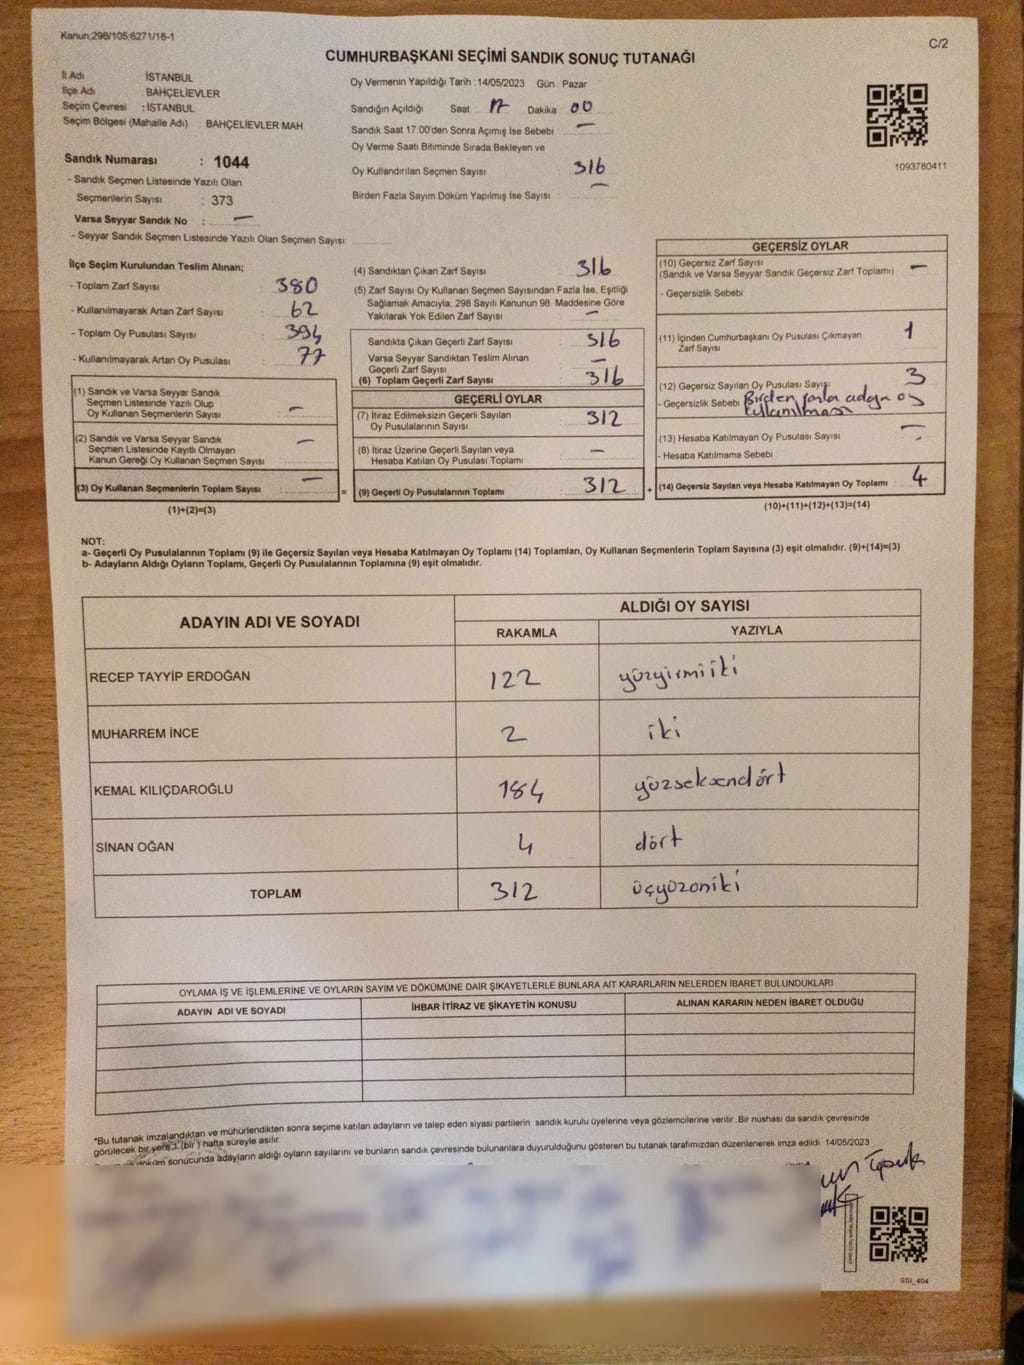 Kanun:298/105:6271/18-1
C/2
CUMHURBAŞKANI SEÇİMİ SANDIK SONUÇ TUTANAĞI
İl Adı İSTANBUL
İlçe Adı : BAHÇELİEVLER
Seçim Çevresi : İSTANBUL
Seçim Bölgesi (Mahalle Adı) : BAHÇELİEVLER MAH
Sandık Numarası : 1044
- Sandık Seçmen Listesinde Yazılı Olan
Seçmenlerin Sayısı : 373
Varsa Seyyar Sandık No : —
- Seyyar Sandık Seçmen Listesinde Yazılı Olan Seçmen Sayısı:
Oy Vermenin Yapıldığı Tarih : 14/05/2023 Gün : Pazar
Sandığın Açıldığı Saat 17 Dakika 00
Sandık Saat 17:00'den Sonra Açımış İse Sebebi : —
Oy Verme Saati Bitiminde Sırada Bekleyen ve
Oy Kullandırılan Seçmen Sayısı 316
Birden Fazla Sayım Döküm Yapılmış İse Sayısı —
1093780411
İlçe Seçim Kurulundan Teslim Alınan;
- Toplam Zarf Sayısı : 380
- Kullanılmayarak Artan Zarf Sayısı : 62
- Toplam Oy Pusulası Sayısı : 394
- Kullanılmayarak Artan Oy Pusulası : 77
(1) Sandık ve Varsa Seyyar Sandık
Seçmen Listesinde Yazılı Olup
Oy Kullanan Seçmenlerin Sayısı : —
(2) Sandık ve Varsa Seyyar Sandık
Seçmen Listesinde Kayıtlı Olmayan
Kanun Gereği Oy Kullanan Seçmen Sayısı : —
(3) Oy Kullanan Seçmenlerin Toplam Sayısı : —
(1)+(2)=(3)
(4) Sandıktan Çıkan Zarf Sayısı : 316
(5) Zarf Sayısı Oy Kullanan Seçmen Sayısından Fazla İse, Eşitliği
Sağlamak Amacıyla, 298 Sayılı Kanunun 98. Maddesine Göre
Yakılarak Yok Edilen Zarf Sayısı : —
Sandıkta Çıkan Geçerli Zarf Sayısı : 316
Varsa Seyyar Sandıktan Teslim Alınan
Geçerli Zarf Sayısı : —
(6) Toplam Geçerli Zarf Sayısı : 316
GEÇERLİ OYLAR
(7) İtiraz Edilmeksizin Geçerli Sayılan
Oy Pusulalarının Sayısı : 312
(8) İtiraz Üzerine Geçerli Sayılan veya
Hesaba Katılan Oy Pusulası Toplamı : —
= (9) Geçerli Oy Pusulalarının Toplamı : 312
GEÇERSİZ OYLAR
(10) Geçersiz Zarf Sayısı
(Sandık ve Varsa Seyyar Sandık Geçersiz Zarf Toplamı) : —
- Geçersizlik Sebebi
(11) İçinden Cumhurbaşkanı Oy Pusulası Çıkmayan
Zarf Sayısı : 1
(12) Geçersiz Sayılan Oy Pusulası Sayısı : 3
- Geçersizlik Sebebi Birden fazla adaya oy
kullanılması
(13) Hesaba Katılmayan Oy Pusulası Sayısı : —
- Hesaba Katılmama Sebebi
+ (14) Geçersiz Sayılan veya Hesaba Katılmayan Oy Toplamı : 4
(10)+(11)+(12)+(13)=(14)
NOT:
a- Geçerli Oy Pusulalarının Toplamı (9) ile Geçersiz Sayılan veya Hesaba Katılmayan Oy Toplamı (14) Toplamları, Oy Kullanan Seçmenlerin Toplam Sayısına (3) eşit olmalıdır. (9)+(14)=(3)
b- Adayların Aldığı Oyların Toplamı, Geçerli Oy Pusulalarının Toplamına (9) eşit olmalıdır.
ADAYIN ADI VE SOYADI ALDIĞI OY SAYISI
RAKAMLA YAZIYLA
RECEP TAYYİP ERDOĞAN 122 yüzyirmiiki
MUHARREM İNCE 2 iki
KEMAL KILIÇDAROĞLU 184 yüzseksendört
SİNAN OĞAN 4 dört
TOPLAM 312 üçyüzoniki
OYLAMA İŞ VE İŞLEMLERİNE VE OYLARIN SAYIM VE DÖKÜMÜNE DAİR ŞİKAYETLERLE BUNLARA AİT KARARLARIN NELERDEN İBARET BULUNDUKLARI
ADAYIN ADI VE SOYADI İHBAR İTİRAZ VE ŞİKAYETİN KONUSU ALINAN KARARIN NEDEN İBARET OLDUĞU
*Bu tutanak imzalandıktan ve mühürlendikten sonra seçime katılan adayların ve talep eden siyasi partilerin sandık kurulu üyelerine veya gözlemcilerine verilir. Bir nüshası da sandık çevresinde
görülecek bir yere 1 (bir ) hafta süreyle asılır.
sonucunda adayların aldığı oyların sayılarını ve bunların sandık çevresinde bulunanlara duyurulduğunu gösteren bu tutanak tarafımızdan düzenlenerek imza edildi. 14/05/2023
SSI_404